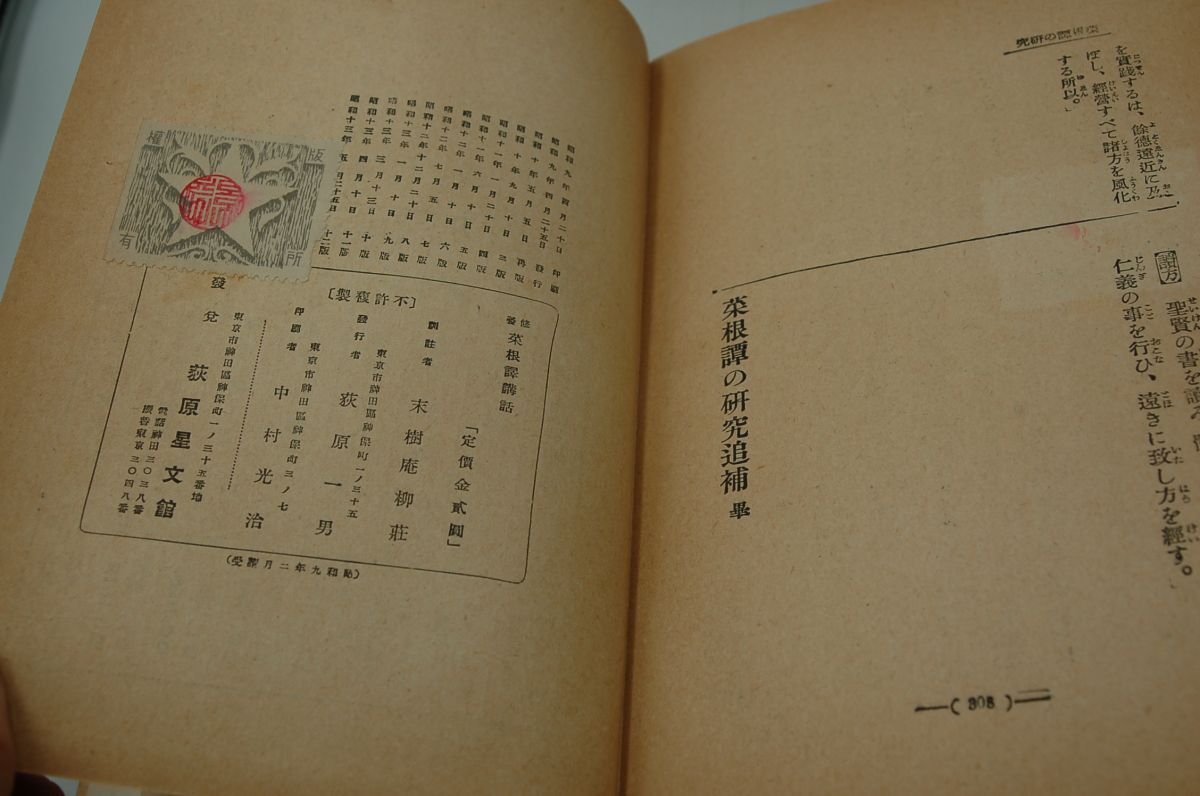 菜根譚の研究
を實踐するは、餘德遠近に及
ぼし、經營すべて諸方を風化
する所以。」
仁義の事を行ひ、遠きに致し方を經す。
菜根譚の研究追補 畢
(308)
昭和九年四月二十日 印刷
昭和九年四月二十五日 發行
昭和十年五月五日 再版
昭和十年九月十日 三版
昭和十一年一月二十日 四版
昭和十一年六月十日 五版
昭和十二年一月十日 六版
昭和十二年七月五日 七版
昭和十二年十二月二十日 八版
昭和十三年一月十日 九版
昭和十三年三月十三日 十版
昭和十三年四月十日 十一版
昭和十三年五月二十五日 十二版
版權所有
修養 菜根譚講話
「定價金貳圓」
訓註者 末樹庵柳荘
東京市神田區神保町一ノ三十五
發行者 荻原一男
東京市神田區神保町三ノ七
印刷者 中村光治
[不許複製]
東京市神田區神保町一ノ三十五番地
發兌 荻原星文館
電話神田三〇三八番
振替東京三〇四八番
(昭和九年二月讓受)